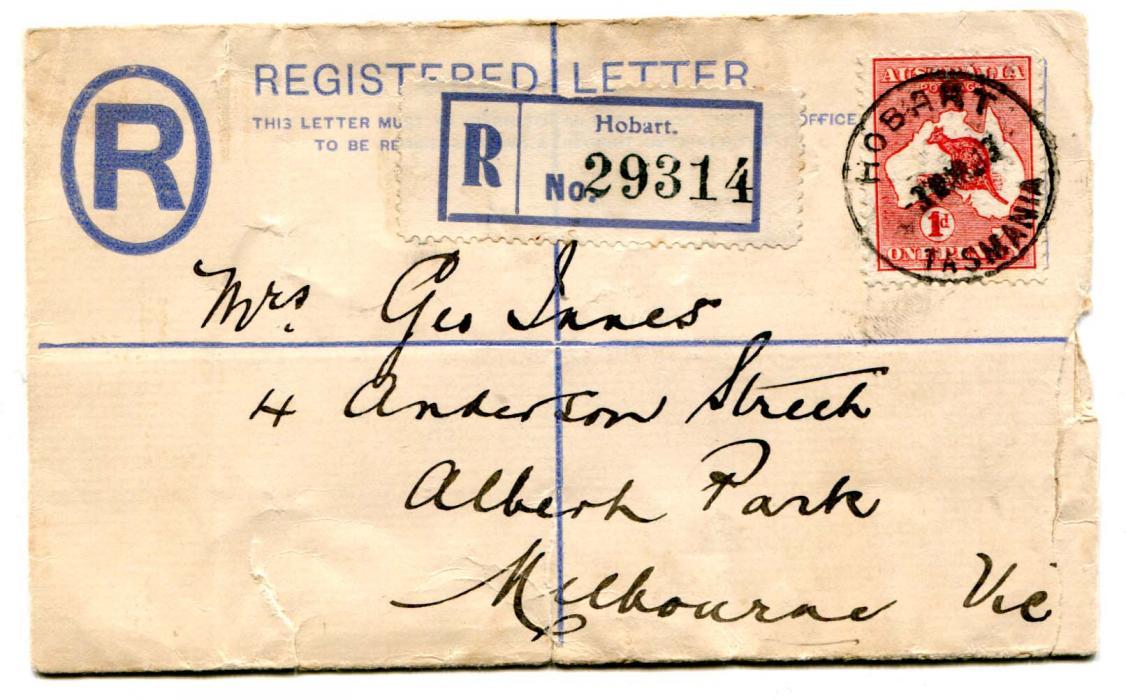 R
REGISTERED LETTER
THIS LETTER MU OFFICE
TO BE RE
R Hobart.
No. 29314
AUSTRALIA
POSTAGE
HOBART
TASMANIA
1d
ONE
Mrs. Geo Innes
4 Anderson Street
Albert Park
Melbourne Vic